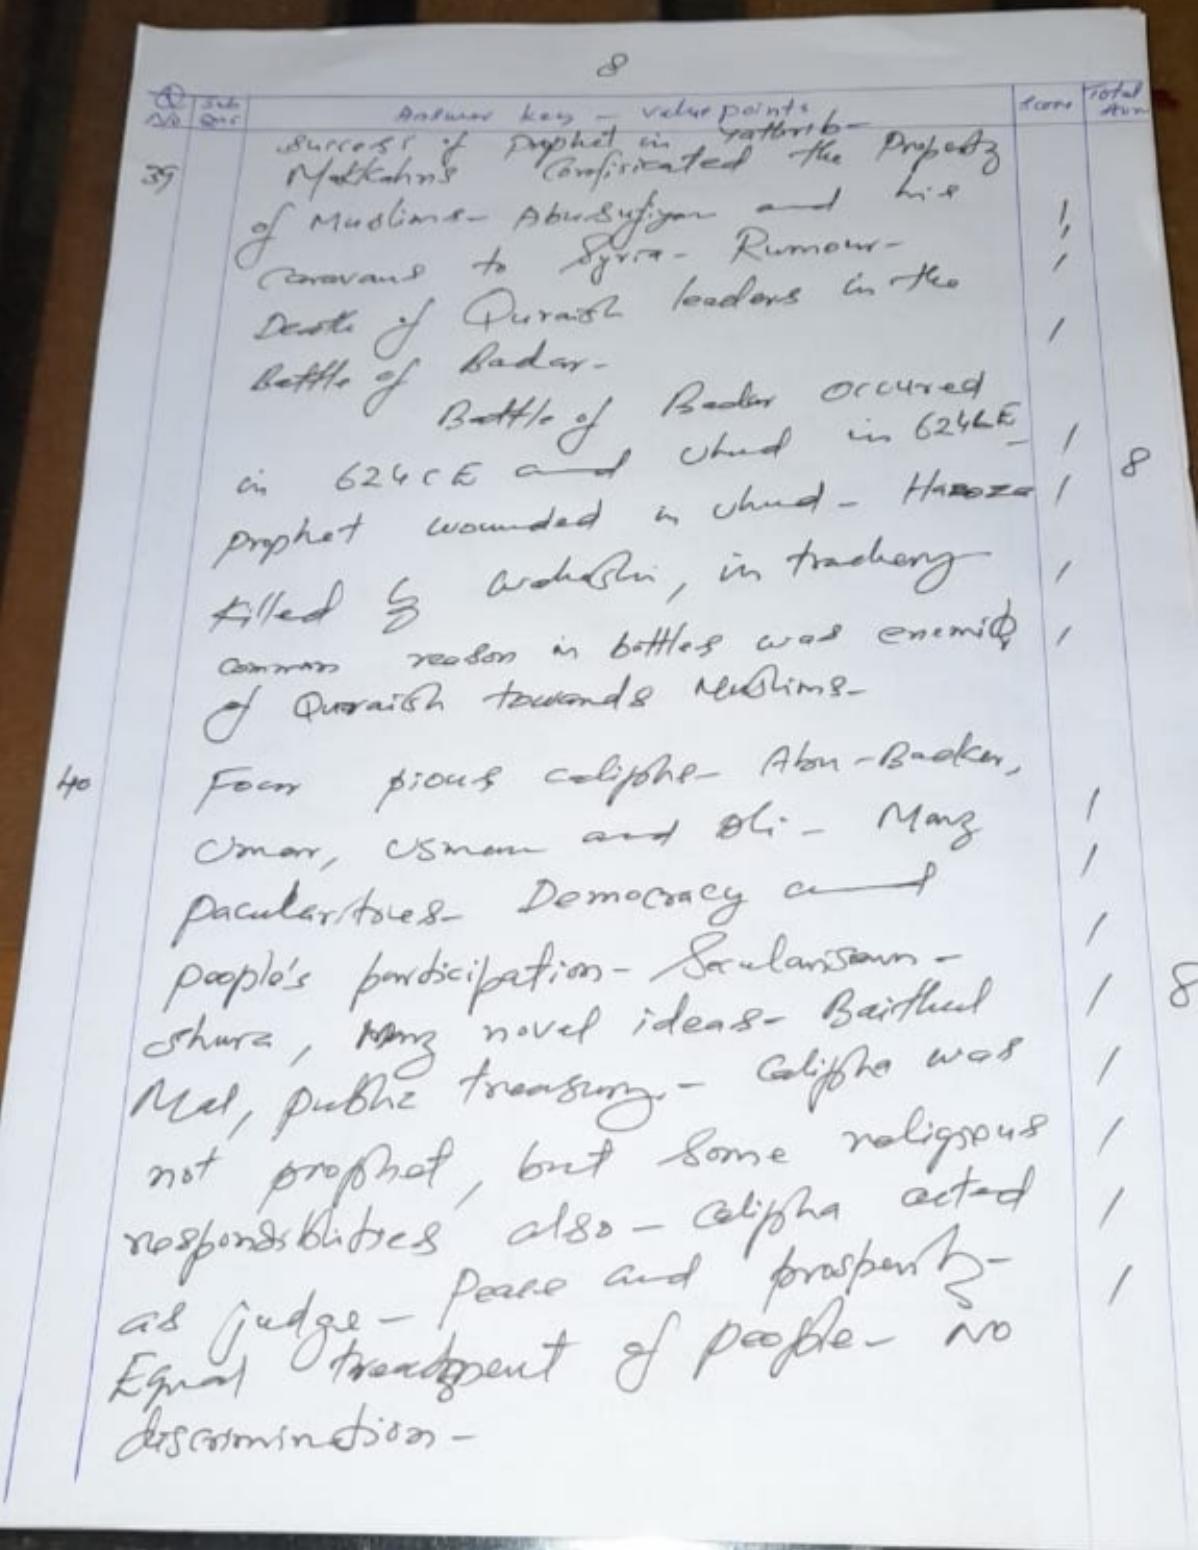 8
Q No Sub Qns Answer key - value points Score Total
Success of Prophet in Yathrib-
39 Makkahns Confisicated the Property
of Muslims- Abu Sufiyan and his
Caravans to Syria- Rumour-
Death of Quraish leaders in the
Battle of Badar-
Battle of Badar Occured
in 624 CE and Uhud in 624 CE
8
Prophet wounded in Uhud-
Killed by in
common reason in battles was
of Quraish towards Muslims-
40 Four pious caliphs- Abu-Backer,
Umar, Usman and Ali- Many
Pacularities- Democracy and
people's participation-
8
Shura, Many novel ideas- Baithul
Mal, public treasury- Calipha was
not prophet, but some religious
responsiblities also- Calipha acted
as judge- Peace and prosperity-
Equal treatment of people- No
discrimination-